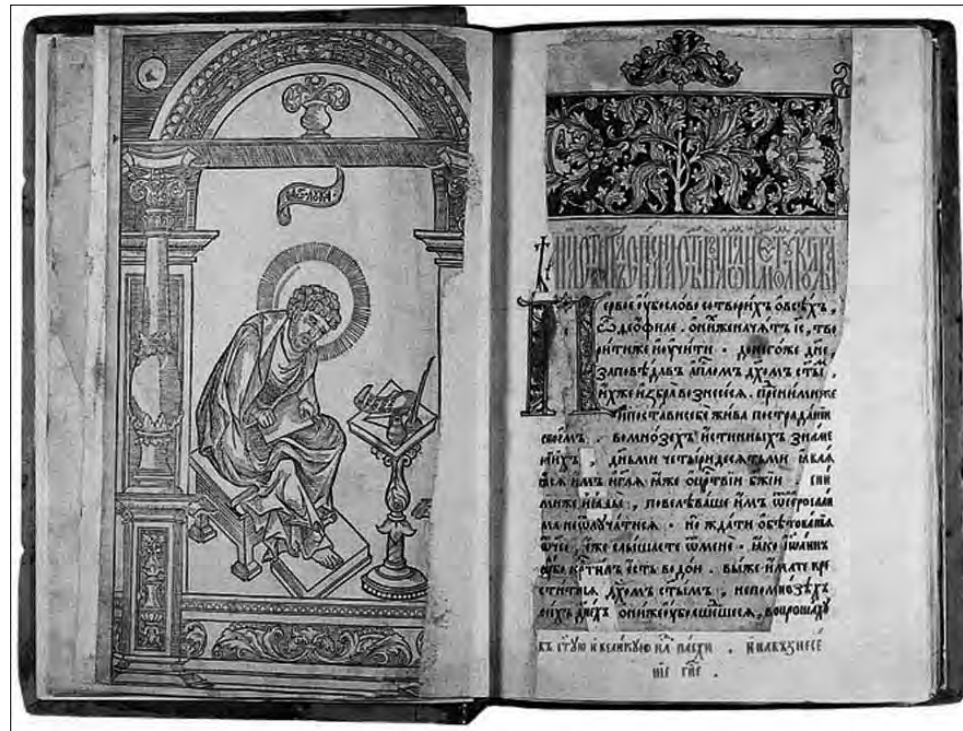 Пе́рвоеꙋ҆́бослово сотвори́хъ ѡ҆всѣ́хъ ,
ѽ ѳео́филе . ѡ҆ни́хженачѧ́тъ і҆с , тво
ри́тиже и҆ꙋчи́ти . донего́же дн҃е ,
заповѣ́давъ а҆пⷭ҇ломъ дх҃омъ ст҃ы́ ,
и҆́хже и҆збра̀вознесе́сѧ . преⷣни́миже
И҆поста́висебѐ жи́ва пострада́нїи
свое́мъ . вомно́зехъ и҆́стинныхъ зна́ме
нїихъ , де́ньми четы́ридесѧтьми ꙗ҆влѧ́
ѧсѧ и҆́мъ и҆гл҃ѧ ꙗ҆́же ѡ҆цр҃твїи бж҃їи . сни́
миже и҆ꙗды̀ , повелѣва́ше и҆́мъ
неѿлꙋча́тисѧ . но жда́ти ѡ҆бѣтова́нїѧ
ѻ҆́ч҃ее , е҆́же слы́шасте ѿменѐ . ꙗ҆́ко і҆ѡа́ннъ
ꙋ҆́бо кр҃ти́лъ е҆́сть водо́ю . вы́же и҆́мате кре
сти́тисѧ дх҃омъ ст҃ы́мъ , непомно́зѣхъ
си́хъ дне́хъ ѡ҆ни́жеꙋ҆́босше́дшесѧ , вопроша́хꙋ
въ ст҃ꙋю и҆ вели́кꙋю нл҃ѧ па́схи . и҆ навъзнесе́
нїе гн҃е .